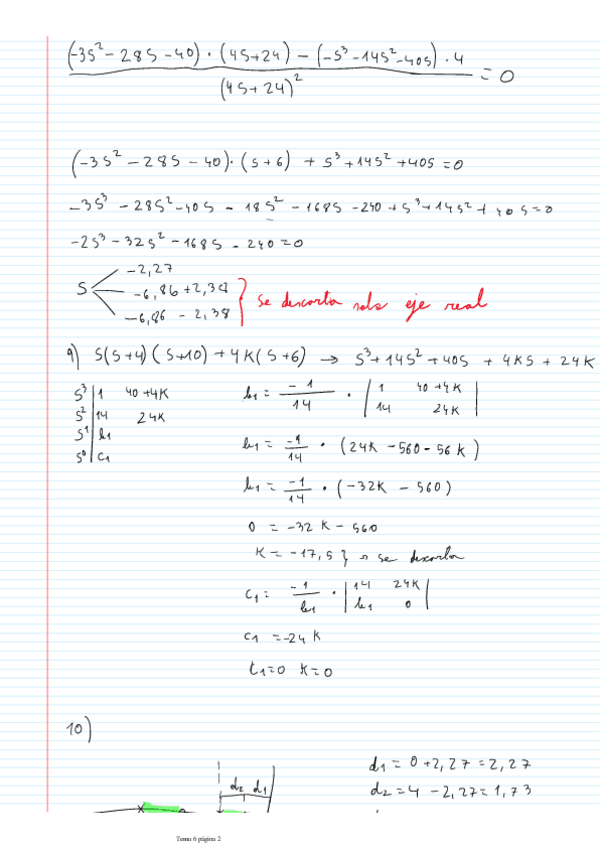 (-3S² - 28S - 40) · (4S+24) - (-S³ - 14S² - 40S) · 4 / (4S+24)² = 0
(-3S² - 28S - 40) · (S+6) + S³ + 14S² + 40S = 0
-3S³ - 28S² - 40S - 18S² - 168S - 240 + S³ + 14S² + 40S = 0
-2S³ - 32S² - 168S - 240 = 0
S
-2,27
-6,86 + 2,38
-6,86 - 2,38
} se descarta solo eje real
9) S(S+4)(S+10) + 4K(S+6) → S³ + 14S² + 40S + 4KS + 24K
S³ | 1 40+4K
S² | 14 24K
S¹ | b₁
S⁰ | C₁
b₁ = -1/14 · | 1 40+4K |
| 14 24K |
b₁ = -1/14 · (24K - 560 - 56K)
b₁ = -1/14 · (-32K - 560)
0 = -32K - 560
K = -17,5 } → se descarta
C₁ = -1/b₁ · | 14 24K |
| b₁ 0 |
C₁ = -24K
C₁=0 K=0
10)
d₁ = 0+2,27 = 2,27
d₂ = 4 - 2,27 = 1,73
d₂ d₁
Tema 6 página 2